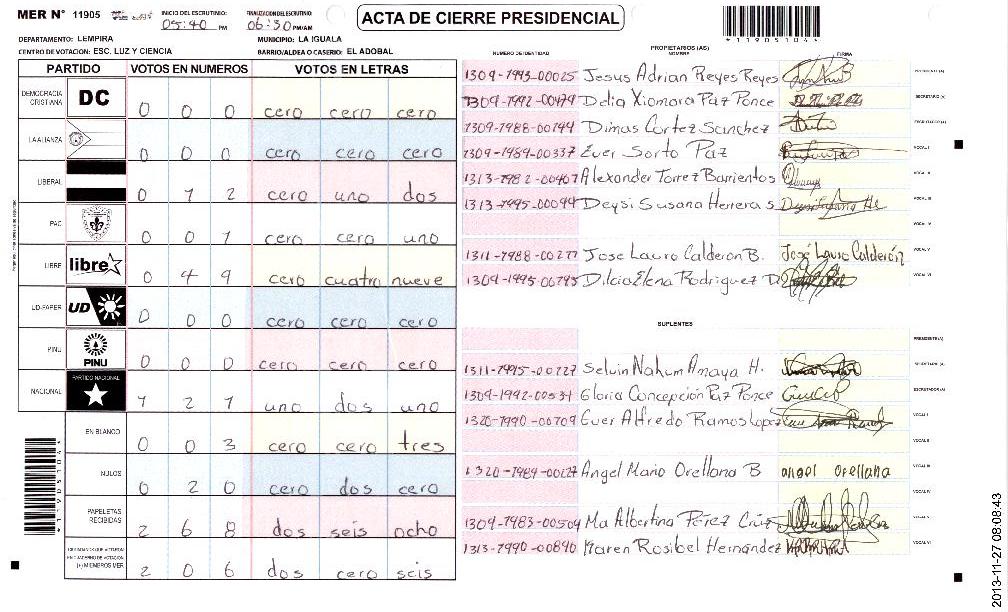 MER N° 11905
INICIO DEL ESCRUTINIO: 05:40 PM
FINALIZACION DEL ESCRUTINIO: 06:30 PM/AM
ACTA DE CIERRE PRESIDENCIAL
*11905104*
DEPARTAMENTO: LEMPIRA
MUNICIPIO: LA IGUALA
CENTRO DE VOTACION: ESC. LUZ Y CIENCIA
BARRIO/ALDEA O CASERIO: EL ADOBAL
PARTIDO VOTOS EN NUMEROS VOTOS EN LETRAS
DEMOCRACIA CRISTIANA DC 0 0 0 cero cero cero
LA ALIANZA 0 0 0 cero cero cero
LIBERAL 0 1 2 cero uno dos
PAC 0 0 1 cero cero uno
LIBRE libre 0 4 9 cero cuatro nueve
UD-FAPER UD 0 0 0 cero cero cero
PINU PINU 0 0 0 cero cero cero
NACIONAL PARTIDO NACIONAL 1 2 1 uno dos uno
EN BLANCO 0 0 3 cero cero tres
NULOS 0 2 0 cero dos cero
PAPELETAS RECIBIDAS 2 6 8 dos seis ocho
CIUDADANOS QUE VOTARON EN CUADERNO DE VOTACION (+) MIEMBROS MER 2 0 6 dos cero seis
*11905104*
PROPIETARIOS (AS)
NUMERO DE IDENTIDAD NOMBRE FIRMA
1309-1993-00025 Jesus Adrian Reyes Reyes PRESIDENTE (A)
1309-1992-00479 Delia Xiomara Paz Ponce SECRETARIO (A)
1309-1988-00194 Dimas Cortez Sanchez ESCRUTADOR (A)
1309-1989-00337 Ever Sorto Paz VOCAL I
1313-1982-00407 Alexander Torrez Barrientos VOCAL II
1313-1995-00094 Deysi Susana Herrera S VOCAL III
VOCAL IV
1311-1988-00277 Jose Lauro Calderon B. José Lauro Calderón VOCAL V
1309-1995-00795 Dilcia Elena Rodriguez D VOCAL VI
SUPLENTES
PRESIDENTE (A)
1311-1995-00227 Selvin Nahum Amaya H. SECRETARIO (A)
1309-1992-00531 Gloria Concepción Paz Ponce ESCRUTADOR (A)
1320-1990-00709 Ever Alfredo Ramos Lopez VOCAL I
VOCAL II
1320-1989-00227 Angel Mario Orellana B angel orellana VOCAL III
VOCAL IV
1309-1983-00504 Ma Albertina Pérez Cruz VOCAL V
1313-1990-00890 Karen Rosibel Hernández VOCAL VI
2013-11-27 08:08:43